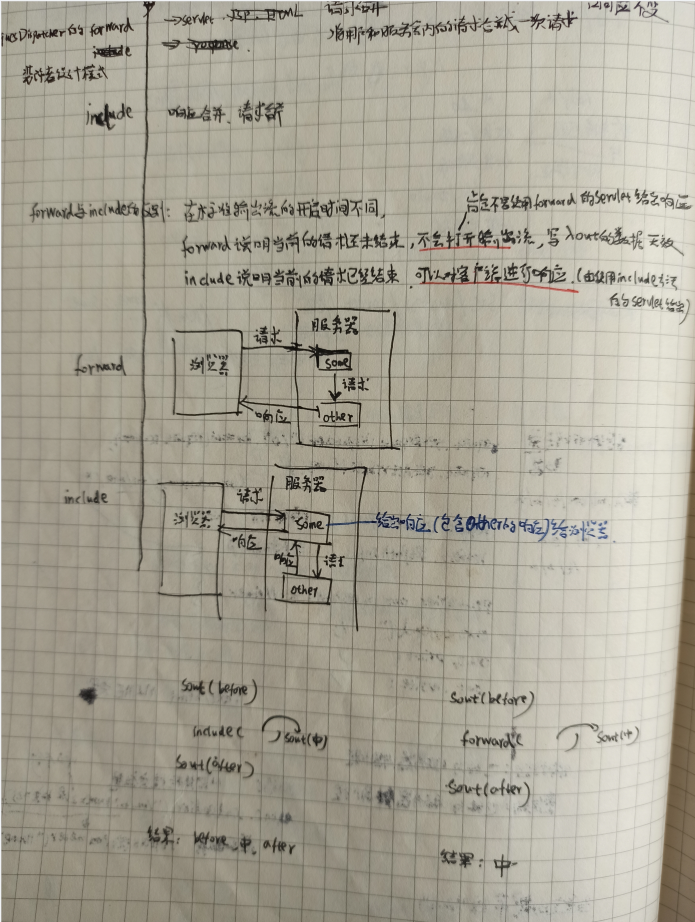 Dispatcher的 forward
→servlet. JSP. HTML
include
response
将用户和服务器内的请求合并成一次请求
装饰者设计模式
include 响应合并、请求合并
forward与include的区别: 在于标准输出流的开启时间不同,
肯定不会使用forward的servlet给出响应
forward说明当前的请求还未结束, 不会打开输出流, 写入out的数据无效
include说明当前的请求已经结束. 可以对客户端进行响应. (由使用include方法
的servlet给出)
forward
浏览器
请求
服务器
some
请求
响应
other
include
浏览器
请求
服务器
some
给出响应(包含other的响应)给浏览器
响应
响应
请求
other
sout(before)
include(
sout(中)
sout(after)
结果: before 中 after
sout(before)
forward(
sout(中)
sout(after)
结果: 中